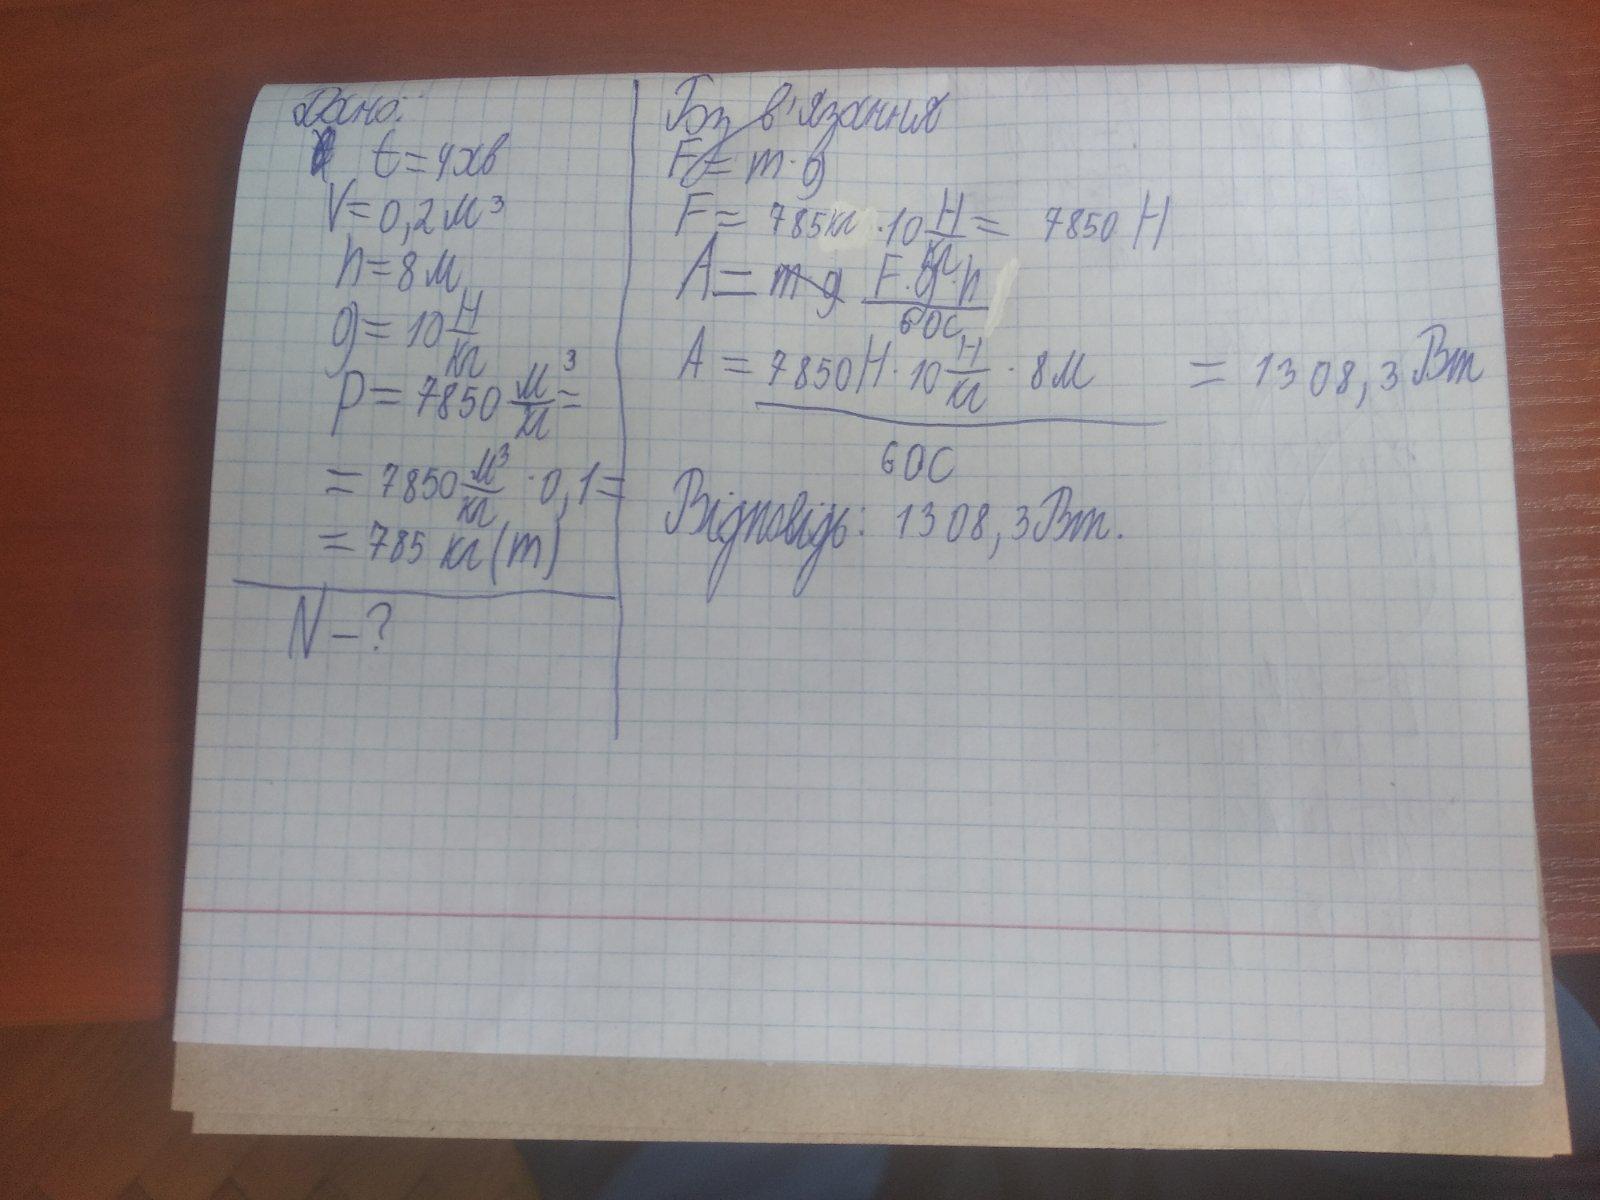 Дано:
t = 4хв
V = 0,2м³
h = 8м
g = 10 Н/кг
p = 7850 м³/кг =
= 7850 м³/кг · 0,1 =
= 785 кг (m)
N – ?
Розв'язання
F = m · g
F = 785кг · 10 Н/кг = 7850 Н
A = m · g F · g · h / 60с
A = 7850Н · 10 Н/кг · 8м / 60с = 1308,3 Вт
Відповідь: 1308,3 Вт.